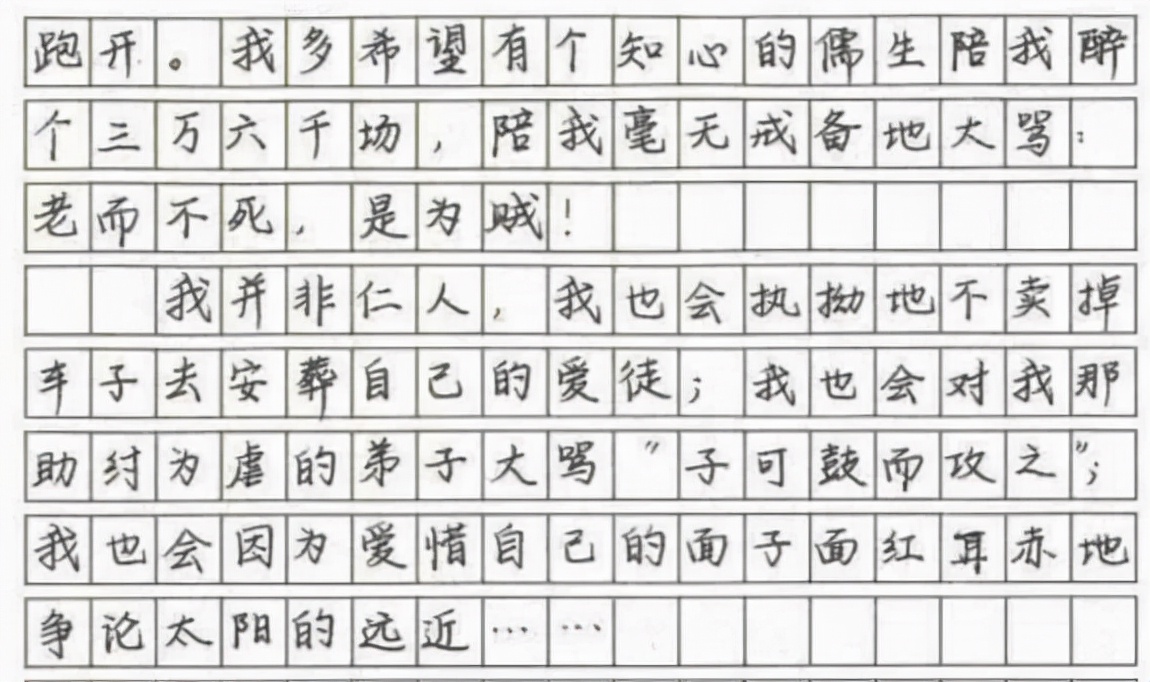 跑开。我多希望有个知心的儒生陪我醉
个三万六千场，陪我毫无戒备地大骂：
老而不死，是为贼！
我并非仁人，我也会执拗地不卖掉
车子去安葬自己的爱徒；我也会对我那
助纣为虐的弟子大骂“子可鼓而攻之”；
我也会因为爱惜自己的面子面红耳赤地
争论太阳的远近……